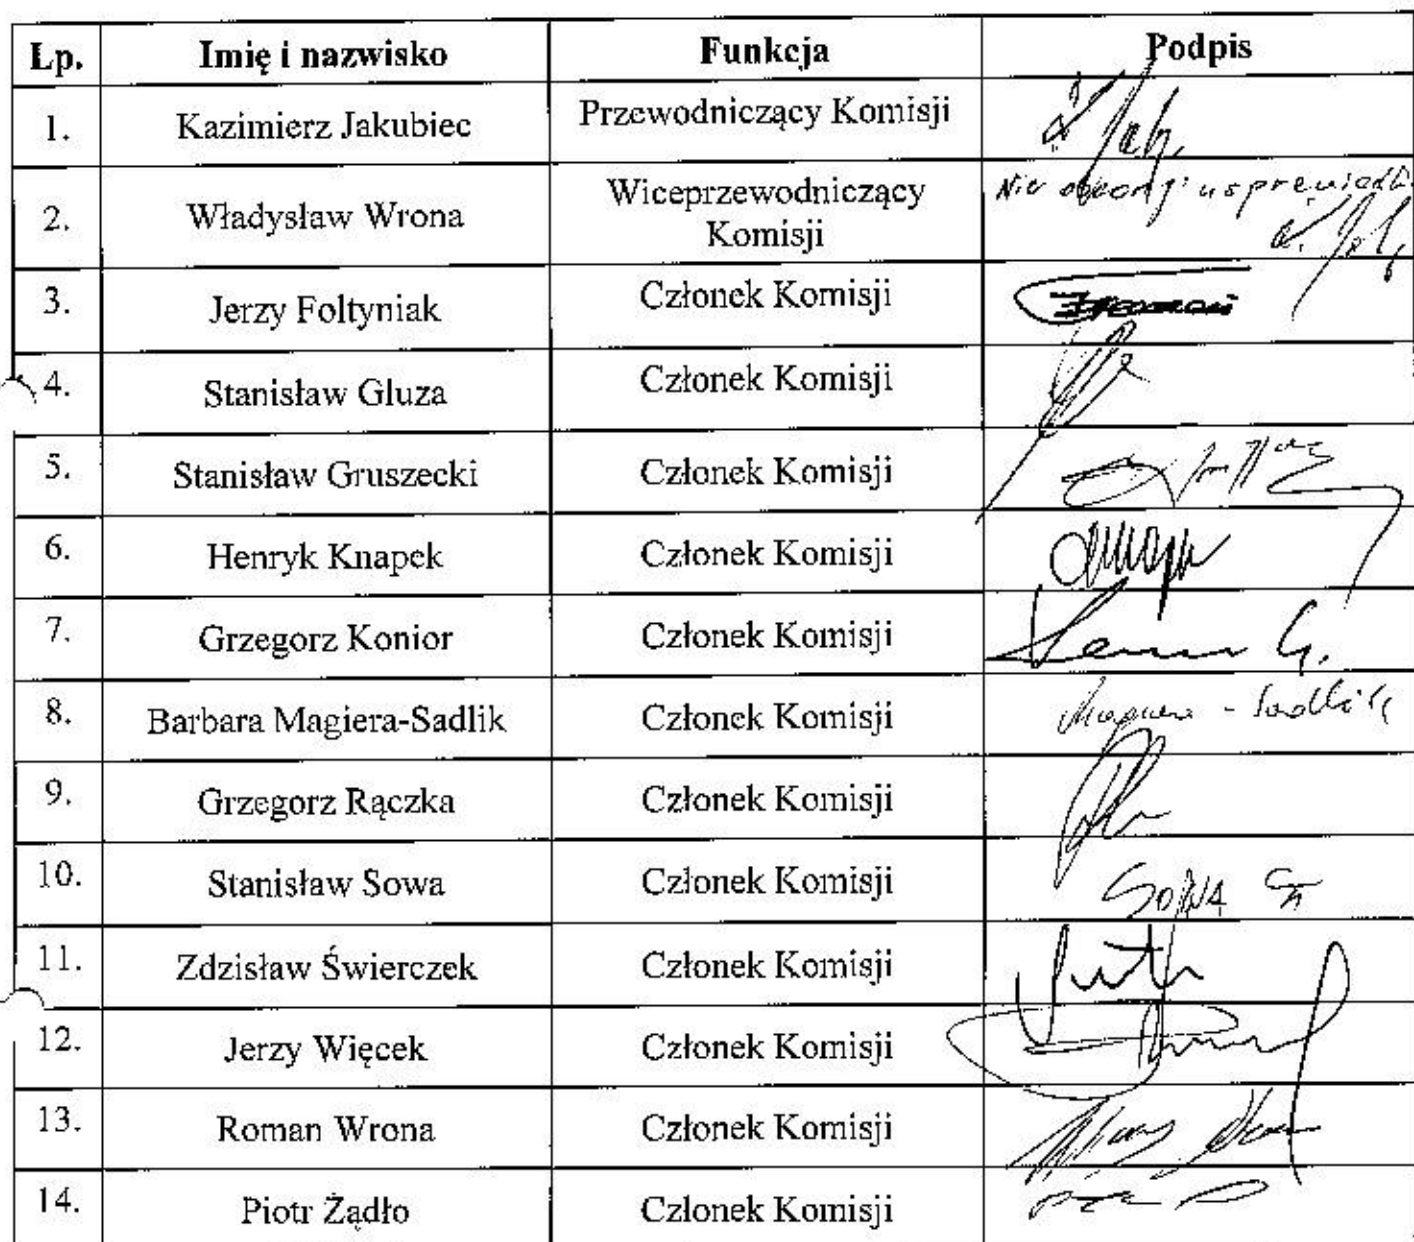 Lp. Imię i nazwisko Funkcja Podpis
1. Kazimierz Jakubiec Przewodniczący Komisji
2. Władysław Wrona Wiceprzewodniczący Komisji Nie obecny
3. Jerzy Foltyniak Członek Komisji
4. Stanisław Gluza Członek Komisji
5. Stanisław Gruszecki Członek Komisji
6. Henryk Knapek Członek Komisji
7. Grzegorz Konior Członek Komisji
8. Barbara Magiera-Sadlik Członek Komisji Magiera-Sadlik
9. Grzegorz Rączka Członek Komisji
10. Stanisław Sowa Członek Komisji SOWA St
11. Zdzisław Świerczek Członek Komisji
12. Jerzy Więcek Członek Komisji
13. Roman Wrona Członek Komisji
14. Piotr Żądło Członek Komisji